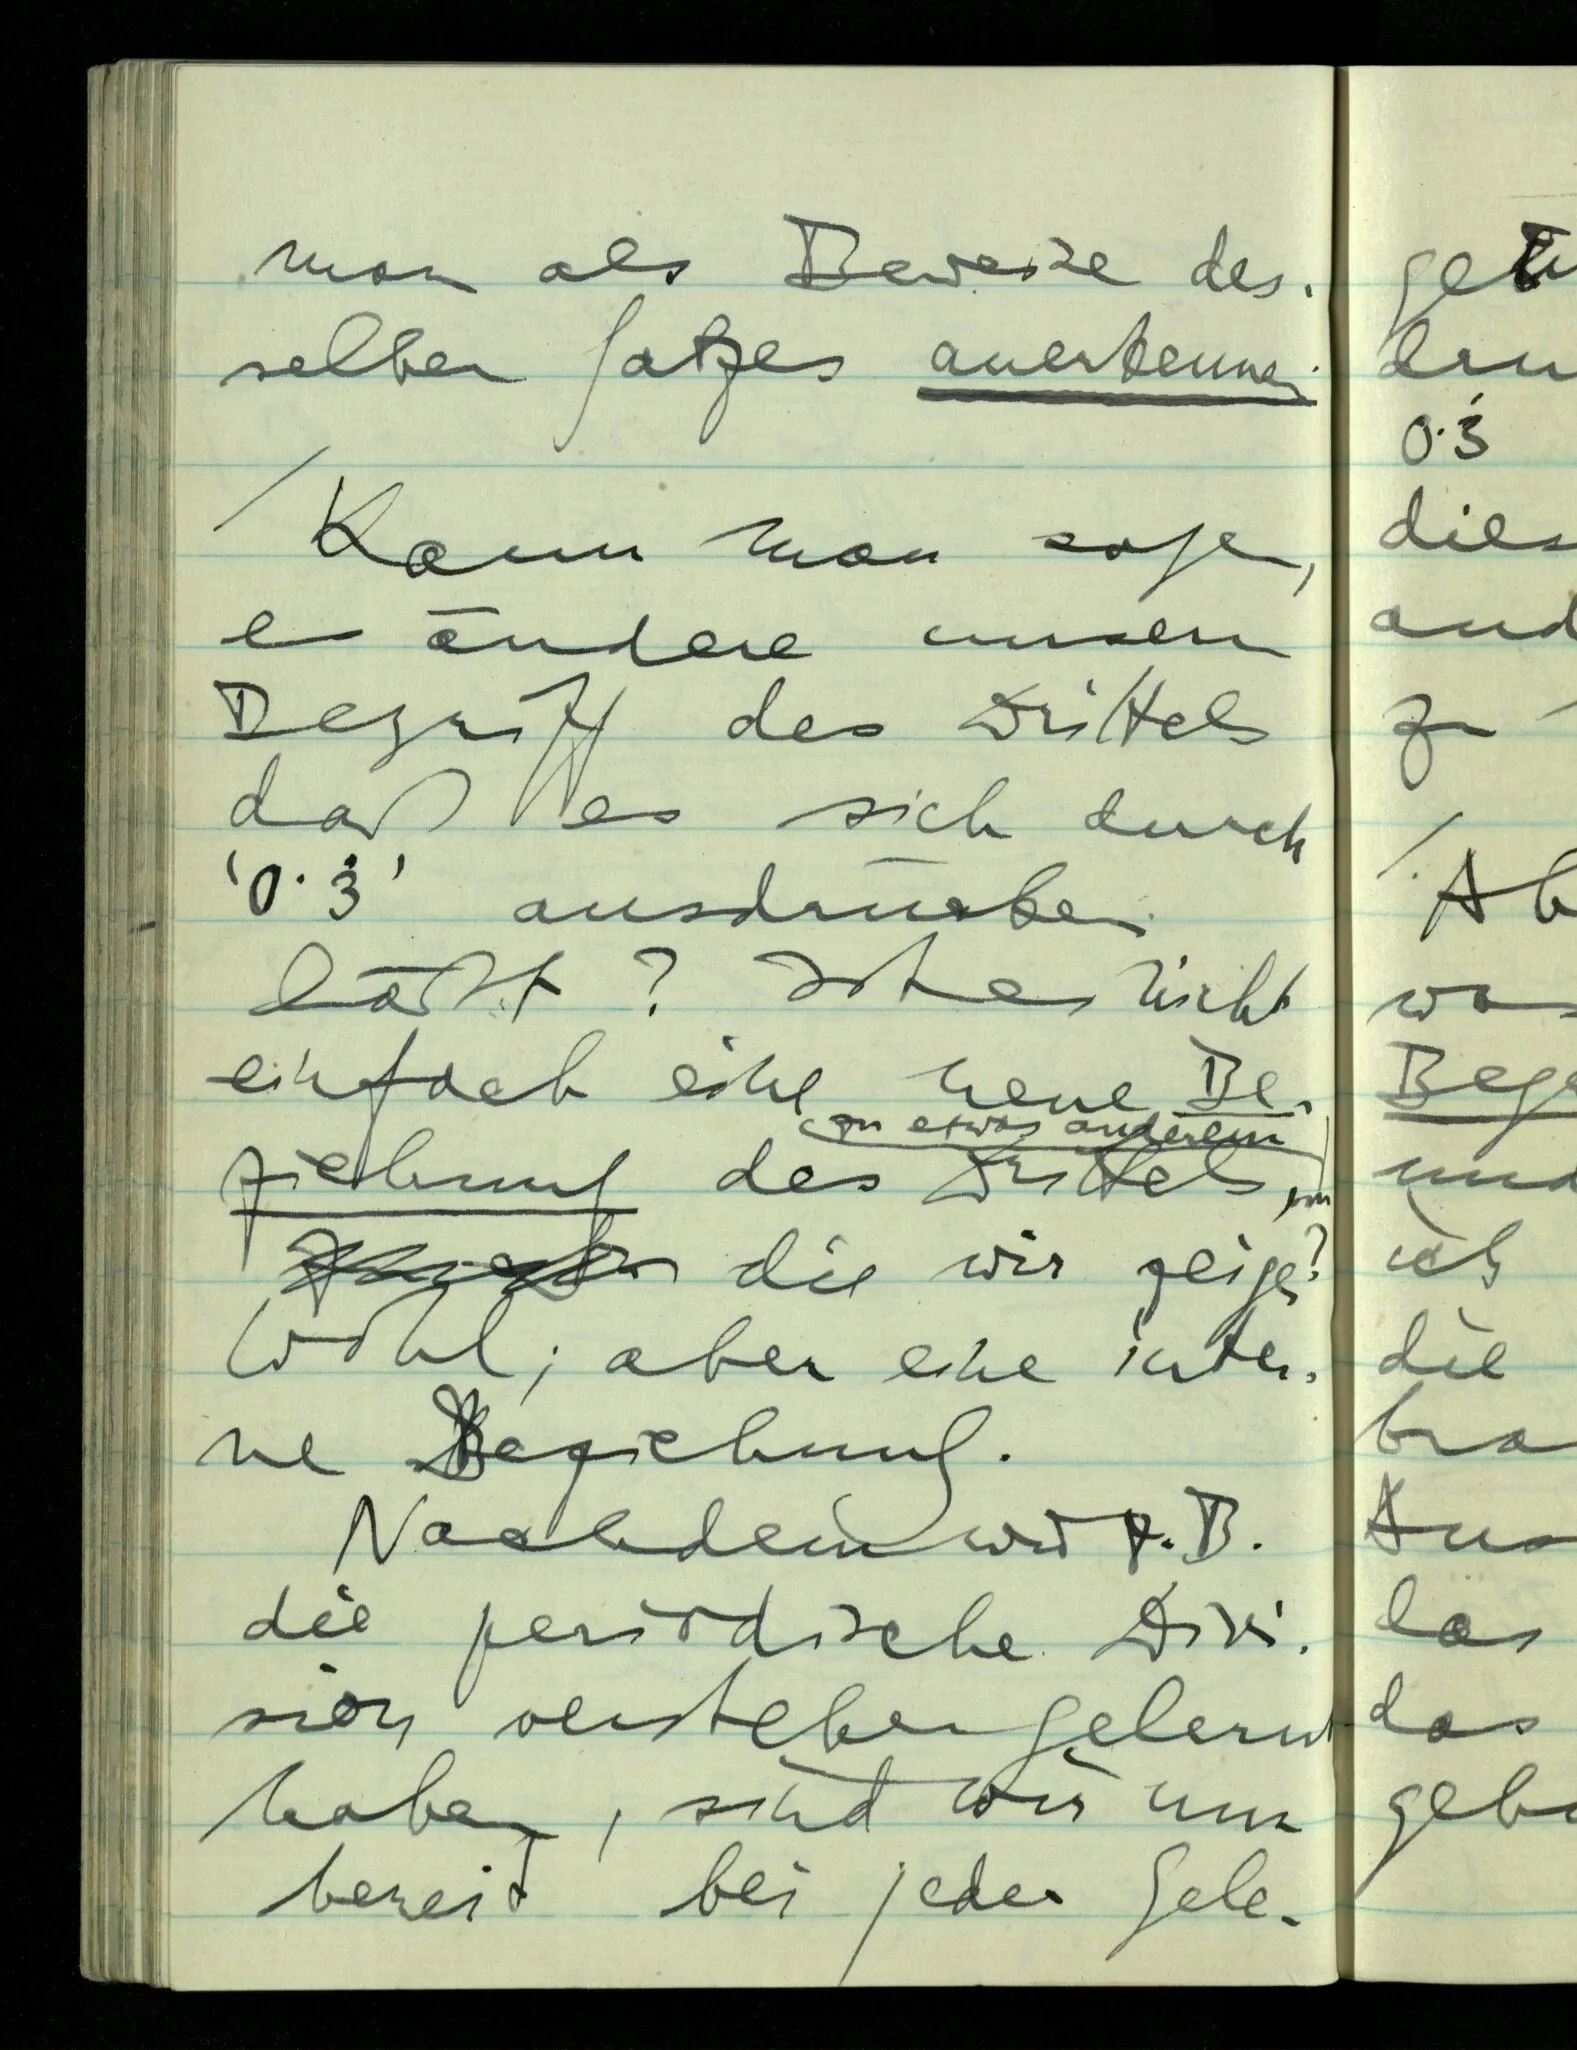 man als Beweise des-
selben Satzes anerkennen.
/ Kann man sagen,
es ändere unsern
Begriff des Drittels
daß es sich durch
'0·3̇' ausdrücken
läßt? Ist es nicht
einfach eine neue Be-
zu etwas anderem
ziehung des Drittels,
die wir zeigen?
Wohl; aber eine inter-
ne Beziehung.
Nachdem wir z.B.
die periodische Divi-
sion verstehen gelernt
haben, sind wir nun
bereit bei jeder Gele-
0·3̇
dies
zu
/ Ab
Bege
und
ich
die
das
das